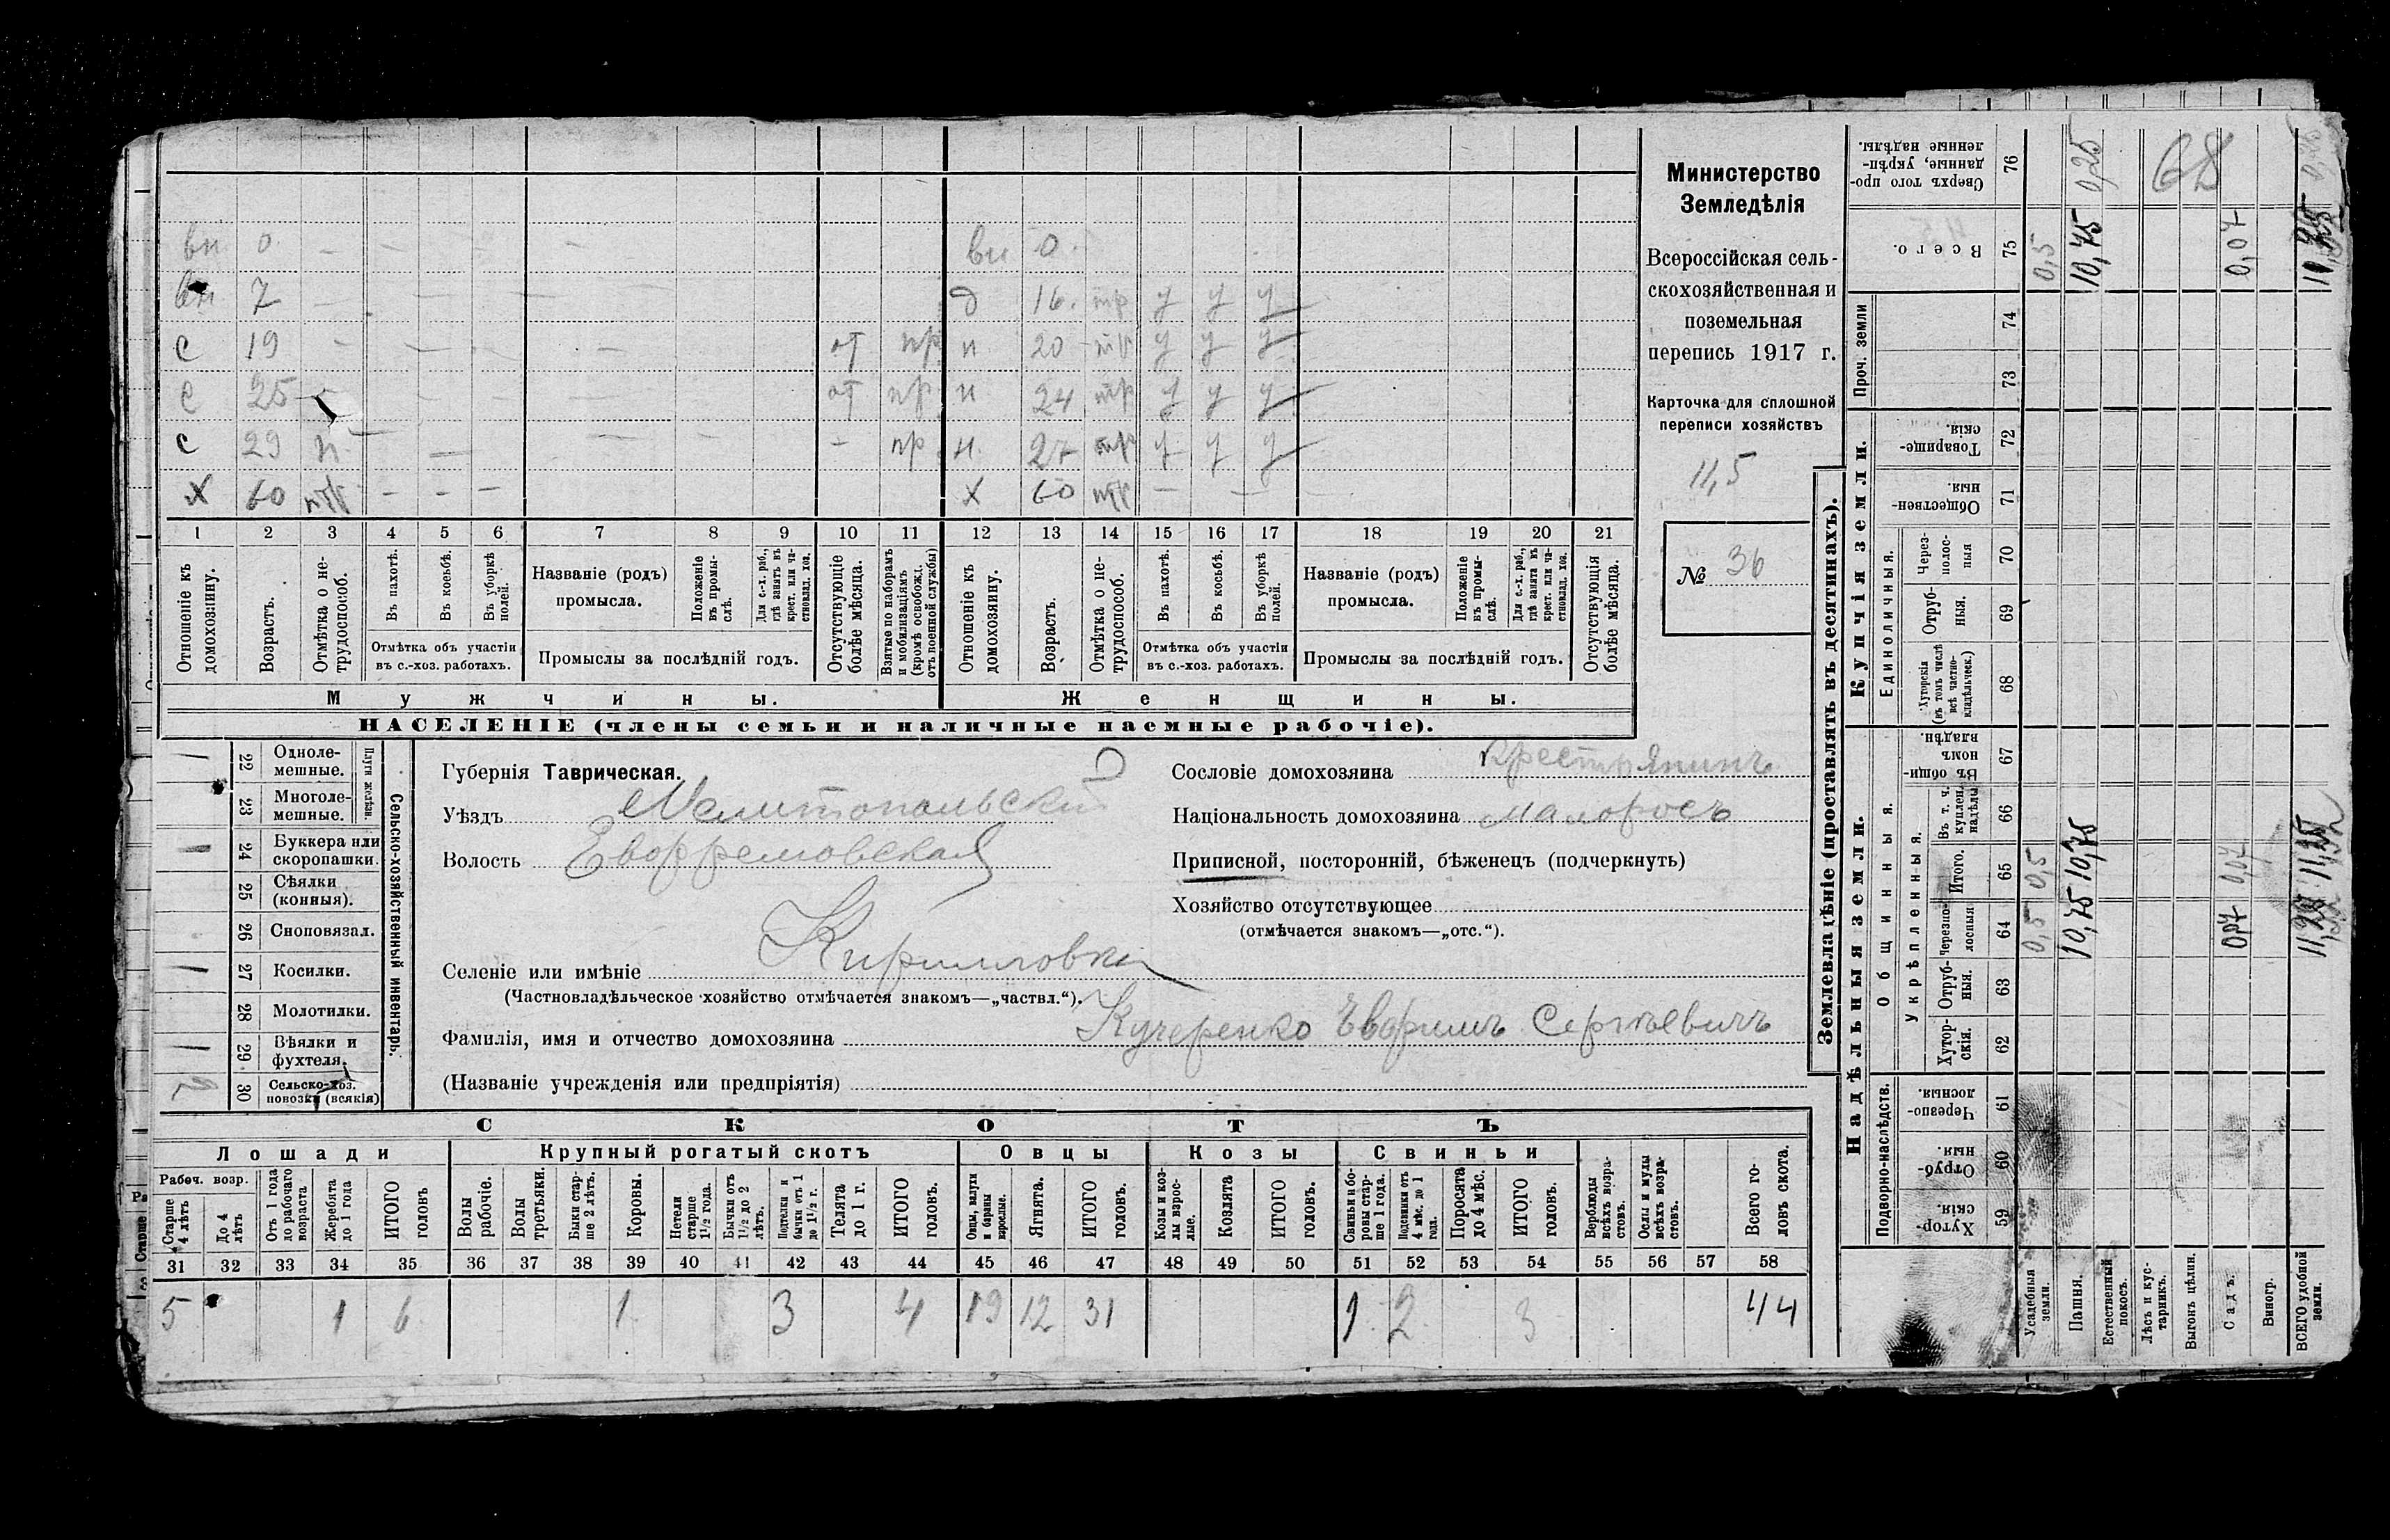 Министерство
Земледѣлія
Всероссійская сель-
скохозяйственная и
поземельная
перепись 1917 г.
Карточка для сплошной
переписи хозяйствъ
11,5
№ 36
вн 0 — — —
вн 7 — — — —
с 19 — — — от пр
с 25 — — — от пр
с 29 н. — — — — — пр
х 60 нтр — — —
вн 0.
д 16. тр у у у
н 20 тр у у у
н 24 тр у у у
н. 27 тр у у у
х 60 нтр — —
1 2 3 4 5 6 7 8 9 10 11 12 13 14 15 16 17 18 19 20 21
Отношеніе къ домохозяину.
Возрастъ.
Отмѣтка о не-трудоспособ.
Въ пахотѣ.
Въ косьбѣ.
Въ уборкѣ полей.
Отмѣтка объ участіи
въ с.-хоз. работахъ.
Названіе (родъ)
промысла.
Положеніе въ промы-слѣ.
Для с.-х. раб., гдѣ занятъ въ крест. или ча-стновлад. хоз.
Промыслы за послѣдній годъ.
Отсутствующіе болѣе мѣсяца.
Взятые по наборамъ и мобилизаціямъ (кромѣ освобожд. отъ военной службы)
Отношеніе къ домохозяину.
Возрастъ.
Отмѣтка о не-трудоспособ.
Въ пахотѣ.
Въ косьбѣ.
Въ уборкѣ полей.
Отмѣтка объ участіи
въ с.-хоз. работахъ.
Названіе (родъ)
промысла.
Положеніе въ промы-слѣ.
Для с.-х. раб., гдѣ занята въ крест. или ча-стновлад. хоз.
Промыслы за послѣдній годъ.
Отсутствующія болѣе мѣсяца.
Мужчины.
Женщины.
НАСЕЛЕНІЕ (члены семьи и наличные наемные рабочіе).
Сельско-хозяйственный инвентарь.
Плуги желѣзн.
22 Одноле-мешные. 1
23 Многоле-мешные.
24 Буккера или скоропашки. 1
25 Сѣялки (конныя).
26 Сноповязал.
27 Косилки. 1
28 Молотилки.
29 Вѣялки и фухтеля. 1
30 Сельско-хоз. повозки (всякія)
Губернія Таврическая. 2
Уѣздъ Мелитопольскій
Волость Ефремовская
Селеніе или имѣніе Кирилловка
(Частновладѣльческое хозяйство отмѣчается знакомъ—„частвл.“).
Фамилія, имя и отчество домохозяина Кучеренко Ефимъ Сергѣевичъ
(Названіе учрежденія или предпріятія)
Сословіе домохозяина Крестьянинъ
Національность домохозяина малоросъ
Приписной, посторонній, бѣженецъ (подчеркнуть)
Хозяйство отсутствующее
(отмѣчается знакомъ—„отс.“).
СКОТЪ
Лошади
Крупный рогатый скотъ
Овцы
Козы
Свиньи
Рабоч. возр.
Старше 4 лѣтъ
До 4 лѣтъ
Отъ 1 года до рабочаго возраста
Жеребята до 1 года
ИТОГО головъ
Волы рабочіе.
Волы третьяки.
Быки стар-ше 2 лѣтъ.
Коровы.
Нетели старше 1½ года.
Бычки отъ 1½ до 2 лѣтъ.
Подтелки и бычки отъ 1 до 1½ г.
Телята до 1 г.
ИТОГО головъ.
Овцы, валухи и бараны взрослые.
Ягнята.
ИТОГО головъ.
Козы и коз-лы взрос-лые.
Козлята
ИТОГО головъ.
Свиньи и бо-ровы стар-ше 1 года.
Подсвинки отъ 4 мѣс. до 1 года.
Поросята до 4 мѣс.
ИТОГО головъ.
Верблюды всѣхъ возра-стовъ.
Ослы и мулы всѣхъ возра-стовъ.
Всего го-ловъ скота.
31 32 33 34 35 36 37 38 39 40 41 42 43 44 45 46 47 48 49 50 51 52 53 54 55 56 57 58
5 1 6 1 3 4 19 12 31 1 2 3 44
Землевладѣніе (проставлять въ десятинахъ).
Надѣльныя земли.
Купчія земли.
Проч. земли
Подворно-наслѣдств.
Общинныя.
Укрѣпленныя.
Единоличныя.
59 Хутор-скія.
60 Отруб-ныя.
61 Черезпо-лосныя.
62 Хутор-скія.
63 Отруб-ныя.
64 Черезпо-лосныя
65 Итого.
66 Въ т. ч. куплен. надѣлы
67 Въ общи-номъ владѣн.
68 Хуторскія (въ томъ числѣ всѣ частно-владѣльчек.)
69 Отруб-ныя.
70 Через-полос-ныя
71 Обществен-ныя.
72 Товарище-скія.
73
74
75 Всего.
76 Сверхъ того про-данные, укрѣп-ленные надѣлы.
Усадебныя земли. 0,5 0,5 0,5
Пашня. 10,75 10,75 10,75 0,25
Естественный покосъ.
Лѣсъ и кус-тарникъ.
Выгонъ цѣлин.
Садъ. 0,07 0,07 0,07
Виногр.
ВСЕГО удобной земли.